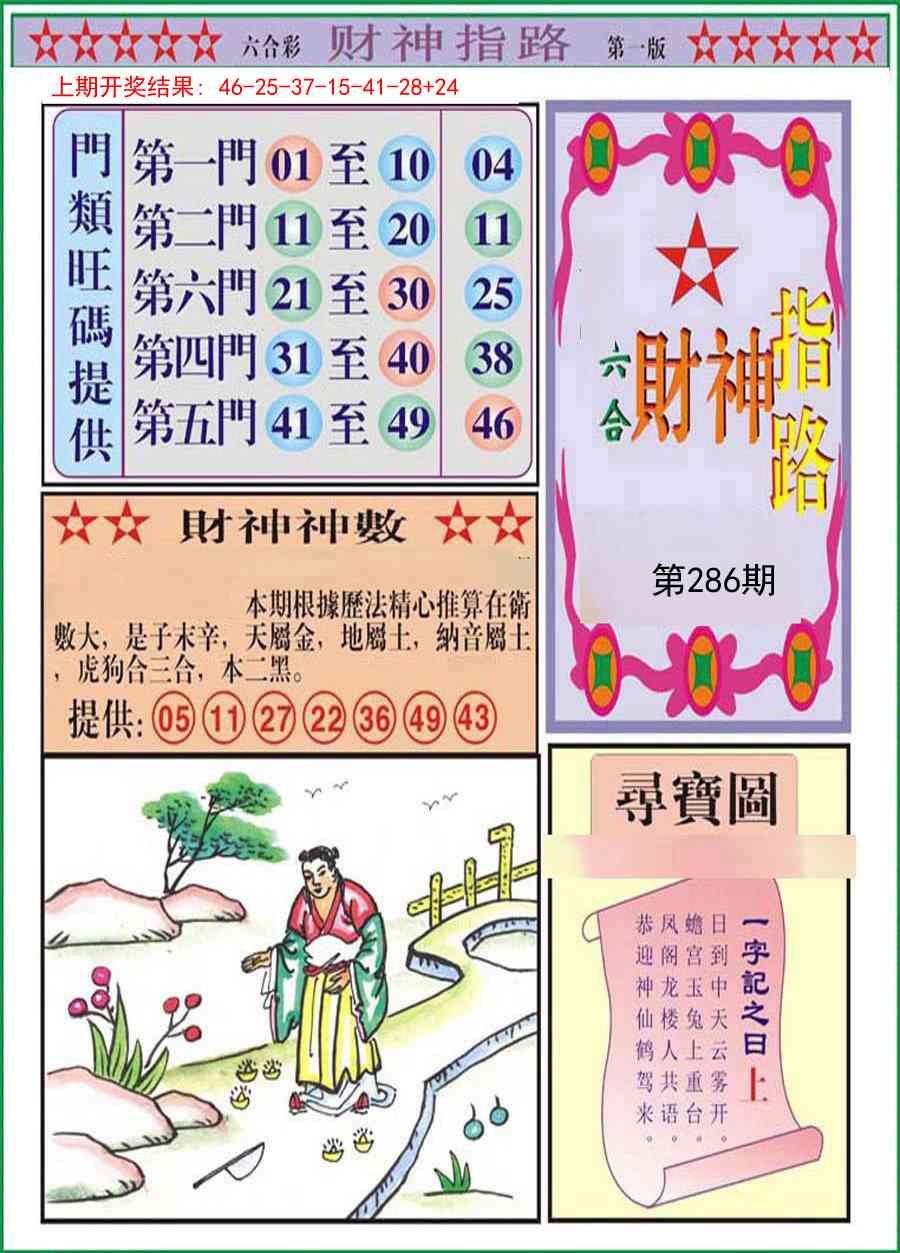 六合彩 财神指路 第一版
上期开奖结果：46-25-37-15-41-28+24
門類旺碼提供
第一門 01 至 10 04
第二門 11 至 20 11
第六門 21 至 30 25
第四門 31 至 40 38
第五門 41 至 49 46
六合 財神 指路
第286期
財神神數
本期根據歷法精心推算在衛
數大，是子末辛，天屬金，地屬土，納音屬土
，虎狗合三合，本二黑。
提供: 05 11 27 22 36 49 43
尋寶圖
一字記之日 上
日到中天云雾开。
蟾宫玉兔上重台。
凤阁龙楼人共语。
恭迎神仙鹤驾来。